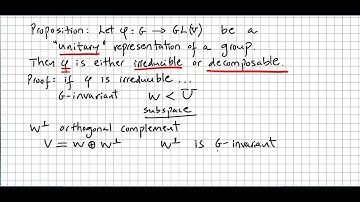 Proposition: Let φ: G → GL(V) be a
"unitary" representation of a group.
Then φ is either irreducible or decomposable.
Proof: if φ is irreducible ...
G-invariant W < U
subspace
W⊥ orthogonal complement
V = W ⊕ W⊥ W⊥ is G-invariant